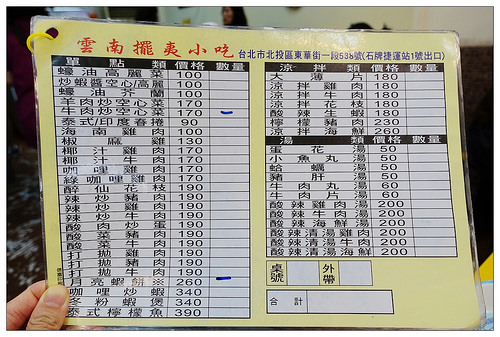 雲南擺夷小吃 台北市北投區東華街一段538號(石牌捷運站1號出口)
單點類 價格 數量
蠔油高麗菜 100
炒蝦醬空心/高麗 100
蠔油芥蘭 100
羊肉炒空心菜 170
牛肉炒空心菜 170
泰式/印度春捲 90
海南雞 100
椒麻雞 130
椰汁雞肉 170
椰汁牛肉 170
咖哩雞肉 170
綠咖哩雞 170
醉仙花枝 190
辣炒豬肉 190
辣炒雞肉 190
辣炒牛肉 190
酸肉炒蛋 190
酸菜豬肉 190
酸菜牛肉 190
打拋雞肉 190
打拋豬肉 190
打拋牛肉 190
月亮蝦餅※ 260
咖哩炒蝦 340
冬粉蝦煲 340
泰式檸檬魚 390
涼拌類 價格 數量
大薄片 180
涼拌雞肉 180
涼拌牛肉 180
涼拌花枝 180
酸辣生蝦 180
檸檬豬肉 230
涼拌海鮮 260
湯類 價格 數量
蛋花湯 50
小魚丸湯 50
蛤蠣湯 50
豬肝湯 50
牛肉丸湯 60
牛肉片湯 60
酸辣雞肉湯 200
酸辣牛肉湯 200
酸辣海鮮湯 200
酸辣清湯雞肉 200
酸辣清湯牛肉 200
酸辣清湯海鮮 200
桌號 外帶
合計